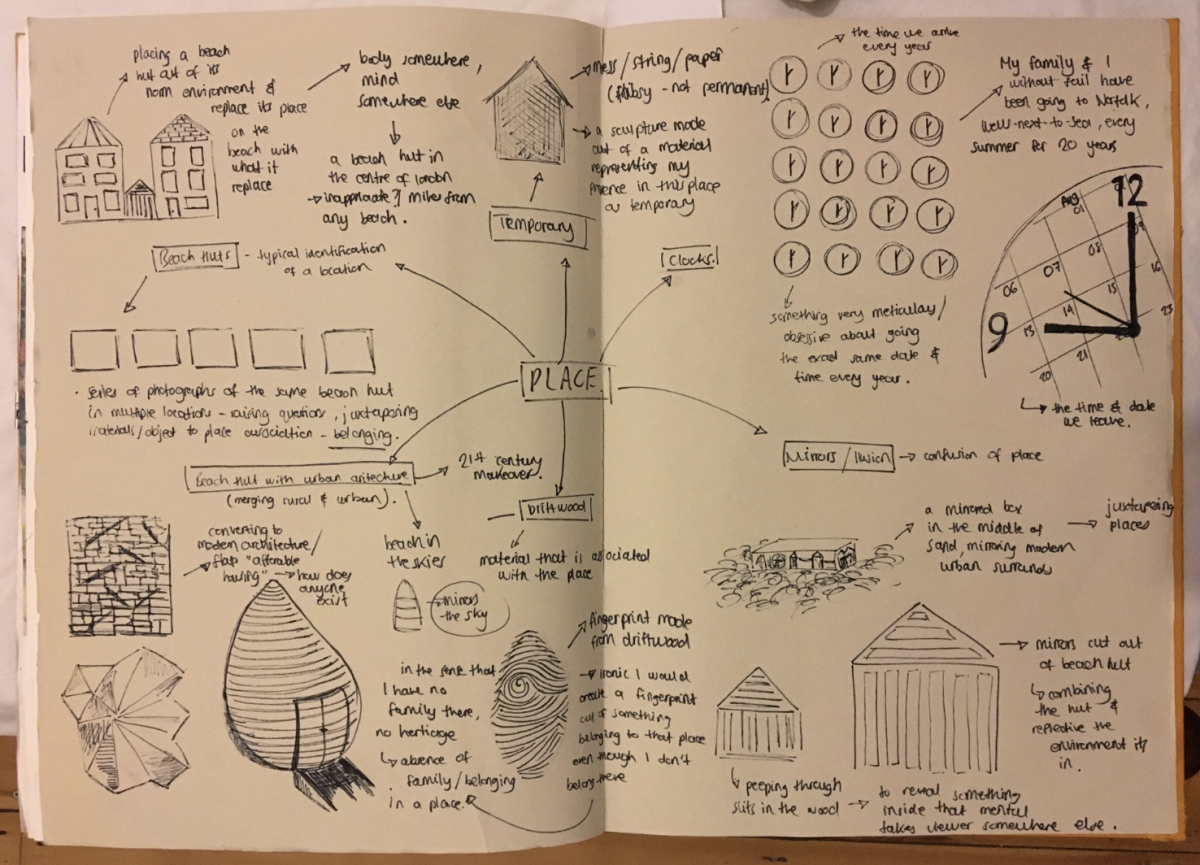 placing a beach
hut out of its
norm environment &
replace its place
on the
beach with
what it
replace
body somewhere,
mind
somewhere else
a beach hut in
the centre of london
→ inappropriate?/ miles from
any beach.
mess/string/paper
(flibsy - not permanent)
a sculpture made
out of a material
representing my
presence in this place
as temporary
Temporary
the time we arrive
every year
My family & I
without fail have
been going to Norfolk,
Wells-next-to-sea, every
summer for 20 years
12
Aug
01
09
08
07
06
16
15
14
13
9
23
21
20
Beach Huts - typical identification
of a location
Clocks.
something very meticulay/
obsessive about going
the exact same date &
time every year.
the time & date
we leave.
PLACE.
· series of photographs of the same beach hut
in multiple locations - raising question, juxtaposing
materials/object to place association - belonging.
Beach Hut with urban aritecture
(merging rural & urban).
21st century
makeover.
Driftwood
material that is associated
with the place
Mirrors / Illusion → confusion of place
converting to
modern architecture/
flap "affordable
housing" → how does
anyone
exist
beach in
the skies
→ mirrors
the sky
a mirrored box
in the middle of
sand, mirroring modern
urban surrounds
juxtaposing
places
fingerprint made
from driftwood
→ ironic I would
create a fingerprint
out of something
belonging to that place
even though I don't
belong there
in the sense that
I have no
family there,
no heritage
↳ absence of
family/belonging
in a place.
→ mirrors cut out
of beach hut
↳ combining
the hut &
reflective the
environment its
in.
↳ peeping through
slits in the wood →
to reveal something
inside that mental
takes viewer somewhere else.